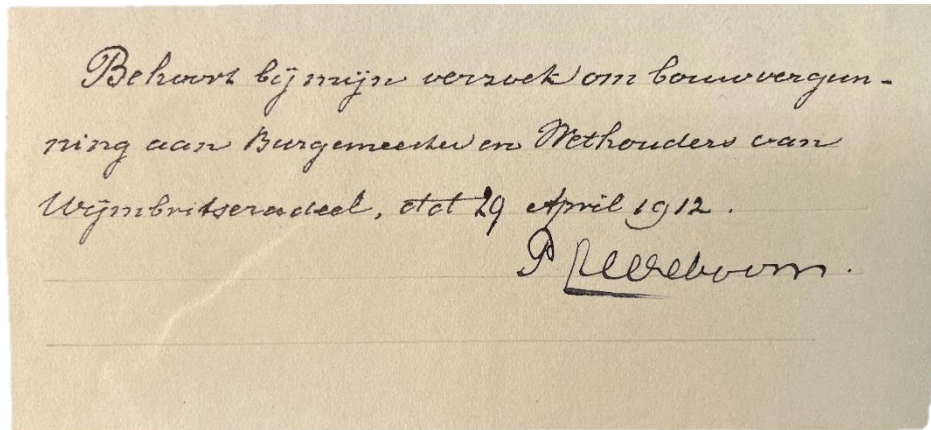 Behoort bij mijn verzoek om bouwvergun-
ning aan Burgemeester en Wethouders van
Wijmbritseradeel, dd 29 April 1912.
P.